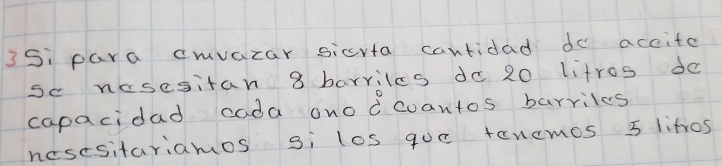 3 Si para emvazar sierta cantidad de aceite
se nesesitan 8 barriles de 20 litros de
capacidad cada ono ¿cuantos barriles
nesesitariamos si los que tenemos 5 litros